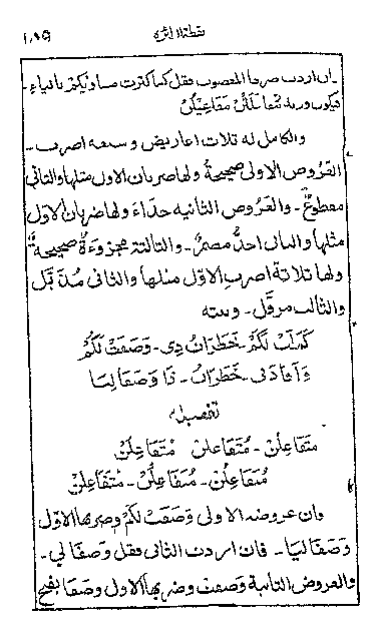 ١٨٩ نقطة الدائرة
ـ ان اردت صرفا المعصوب فقل كما كثرت مساويكم بانباء ـ
فيكون وزنه مفاعلتن مَفَاعِيلُن
والكامل له ثلاث اعاريض وتسعه اضرب ـ
العَرُوض الاولى صحيحةٌ ولها ضربان الاول مثلها والثانى
مقطوعٌ ـ والعَرُوض الثانيه حذاء ولها ضربان الاول
مثلها والثانى احذُّ مضمرٌ ـ والثالثة مجزوءةٌ صحيحةٌ
ولها ثلاثة اضرب الاوّل مثلها والثانى مُذَيّل
والثالث مرفّل ـ وبيته
كَمُلَت لَكُمْ ـ خَطَرَاتُ ذِى ـ وَصَفَتْ لَكُمْ
خَطَرَاتُ ـ ذَا وَصَفَا لِيَا
تفصيله
مُتَفَاعِلُنْ ـ مُتَفَاعلن ـ مُتَفَاعِلُنْ
مُتَفَاعِلُنْ ـ مُتَفَاعِلُنْ ـ مُتَفَاعِلُنْ
وان عروضه الاولى وَصَفَتْ لَكُمْ وضربها الاوّل
وَصَفَا لِيَا ـ فان اردت الثانى فقل وَصَفَا لي ـ
والعروض الثانية وَصَفَتْ وضربها الاول وَصَفَا بفتح